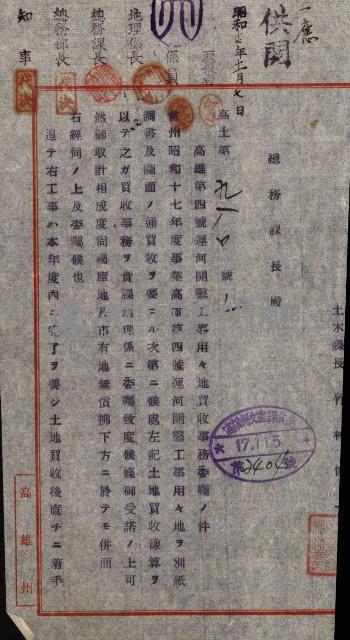 一應
供閱
昭和17年11月7日
地理係長
總務課長
總務部長
知事
代決
代決
土木課長
總務課長殿
高土第九一八〇號ノ一
高雄第四號運河開鑿工事用々地買收事務委囑ノ件
當州昭和十七年度事業高雄第四號運河開鑿工事用々地ヲ別紙
調書及圖面ノ通買收ヲ要スル次第ニ候處左記土地買收豫算ヲ
以テ之ガ買收事務ヲ貴課地理係ニ委囑致度候條御受諾ノ上可
然御取計相成度尚國庫地及市有地無償拂下方ニ於テモ併而
右經伺ノ上及委囑候也
追テ右工事ハ本年度內ニ完了ヲ要シ土地買收後直チニ着手
17.11.5
第2404號
高雄州